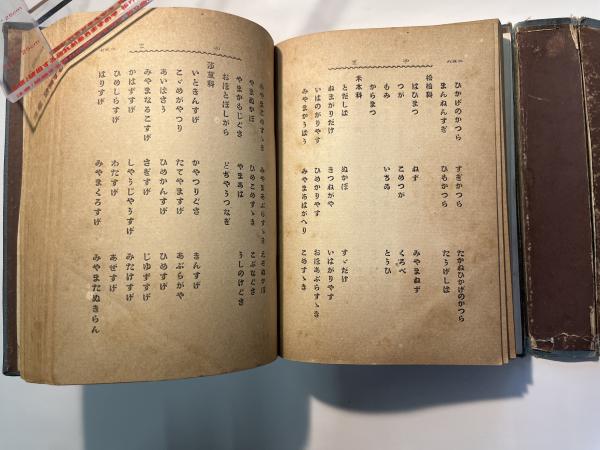 ひかげのかつら　すぎかつら　たかねひかげのかつら
まんねんすぎ　ひもかつら　たうげしば
松柏科
はひまつ　ねず　みやまねず
つが　こめつが　くろべ
もみ　いちゐ　とうひ
からまつ
禾本科
とだしば　ぬかぼ　すゞだけ
ぬまがりだけ　きつねがや　いはがりやす
いはのがりやす　ひめかりやす　おほあぶらすゝき
みやまかうばう　みやまあはがへり　こめすゝき
みやまこめすゝき　みやまあぶらすゝき　えぞぬかぼ
やまぬかぼ　ひめこめすゝき　こぶなぐさ
やまかもじぐさ　やまあは　うしのけぐさ
おほとぼしがら　どぢやうつなぎ
莎草科
いときんすげ　かやつりぐさ　きんすげ
こゞめがやつり　たてやますげ　あぶらがや
あいばさう　ひめかんすげ　ひめすげ
みやまなるこすげ　さぎすげ　じゆずすげ
かはずすげ　しやうじやうすげ　みたけすげ
ひめしらすげ　わたすげ　あぜすげ
はりすげ　みやまくろすげ　みやまたぬきらん
25cm